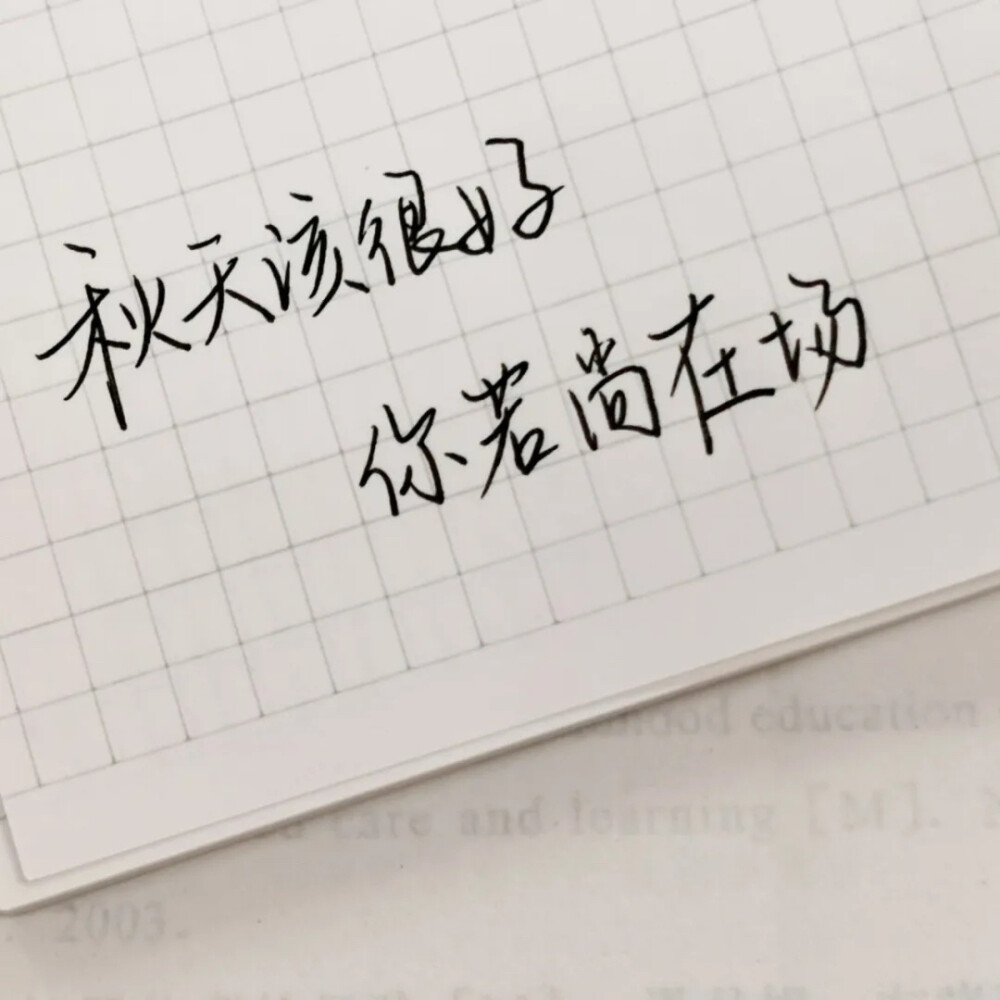 秋天该很好
你若尚在场
education
care and learning [M].
2003.